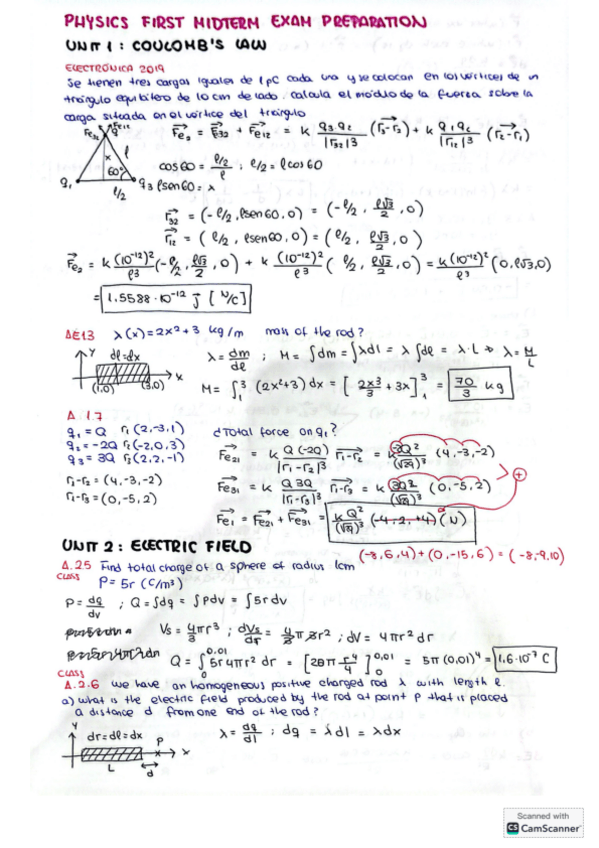 PHYSICS FIRST MIDTERM EXAM PREPARATION
UNIT 1 : COULOMB'S LAW
ELECTRÓNICA 2019
Se tienen tres cargas iguales de 1 pC cada una y se colocan en los vértices de un
triángulo equilátero de 10 cm de lado, calcula el módulo de la fuerza sobre la
carga situada en el vértice del triángulo
Fe₃₂ Fe₁₂ Fe₂ = Fe₃₂ + Fe₁₂ = k q₃q₂/|r₃₂|³ (r₃-r₂) + k q₁q₂/|r₁₂|³ (r₂-r₁)
x l 60° cos60 = (l/2)/l ; l/2 = l cos 60
q₁ l/2 q₃ l sen60 = x
r₃₂ = (-l/2, l sen60, 0) = (-l/2, l√3/2, 0)
r₁₂ = (l/2, l sen60, 0) = (l/2, l√3/2, 0)
Fe₂ = k (10⁻¹²)²/l³ (-l/2, l√3/2, 0) + k (10⁻¹²)²/l³ (l/2, l√3/2, 0) = k(10⁻¹²)²/l³ (0, l√3, 0)
= 1.5588·10⁻¹² J [N/C]
ΔE13 λ(x) = 2x²+3 kg/m mass of the rod?
Y dl=dx λ = dm/dl ; M = ∫dm = ∫λdl = λ∫dl = λ·L → λ = M/L
(1,0) (3,0) X M = ∫₁³ (2x²+3) dx = [2x³/3 + 3x]₁³ = 70/3 kg
Δ.1.7
q₁ = Q r₁(2,-3,1) ¿Total force on q₁?
q₂ = -2Q r₂(-2,0,3) Fe₂₁ = k Q(-2Q)/|r₁-r₂|³ r₁-r₂ = k 2Q²/(√29)³ (4,-3,-2)
q₃ = 3Q r₃(2,2,-1)
r₁-r₂ = (4,-3,-2) Fe₃₁ = k Q3Q/|r₁-r₃|³ r₁-r₃ = k 3Q²/(√29)³ (0,-5,2) +
r₁-r₃ = (0,-5,2)
Fe₁ = Fe₂₁ + Fe₃₁ = kQ²/(√29)³ (-4 2, +4) (N)
UNIT 2 : ELECTRIC FIELD (-8,6,4)+(0,-15,6) = (-8,-9,10)
Δ.25 Find total charge of a sphere of radius 1cm
CLASS ρ = 5r (C/m³)
ρ = dq/dv ; Q = ∫dq = ∫ρdv = ∫5rdv
Vs = 4/3 πr³ ; dVs/dr = 4/3 π 3r² ; dV = 4πr²dr
Q = ∫₀^0.01 5r4πr² dr = [20π r⁴/4]₀^0.01 = 5π(0.01)⁴ = 1.6·10⁻⁷ C
CLASS
Δ.2.6 we have an homogeneous positive charged rod λ with length l.
a) what is the electric field produced by the rod at point P that is placed
a distance d from one end of the rod?
Y dr=dl=dx P X λ = dq/dl ; dq = λdl = λdx
L d
Scanned with
CS CamScanner